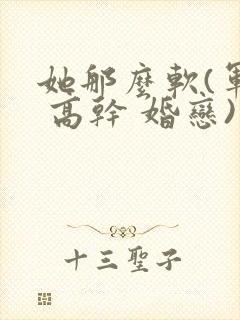 她那麼軟(軍
高幹 婚戀)
十三聖子